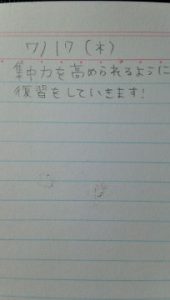 7/17(木)
集中力を高められるように
復習をしていきます!